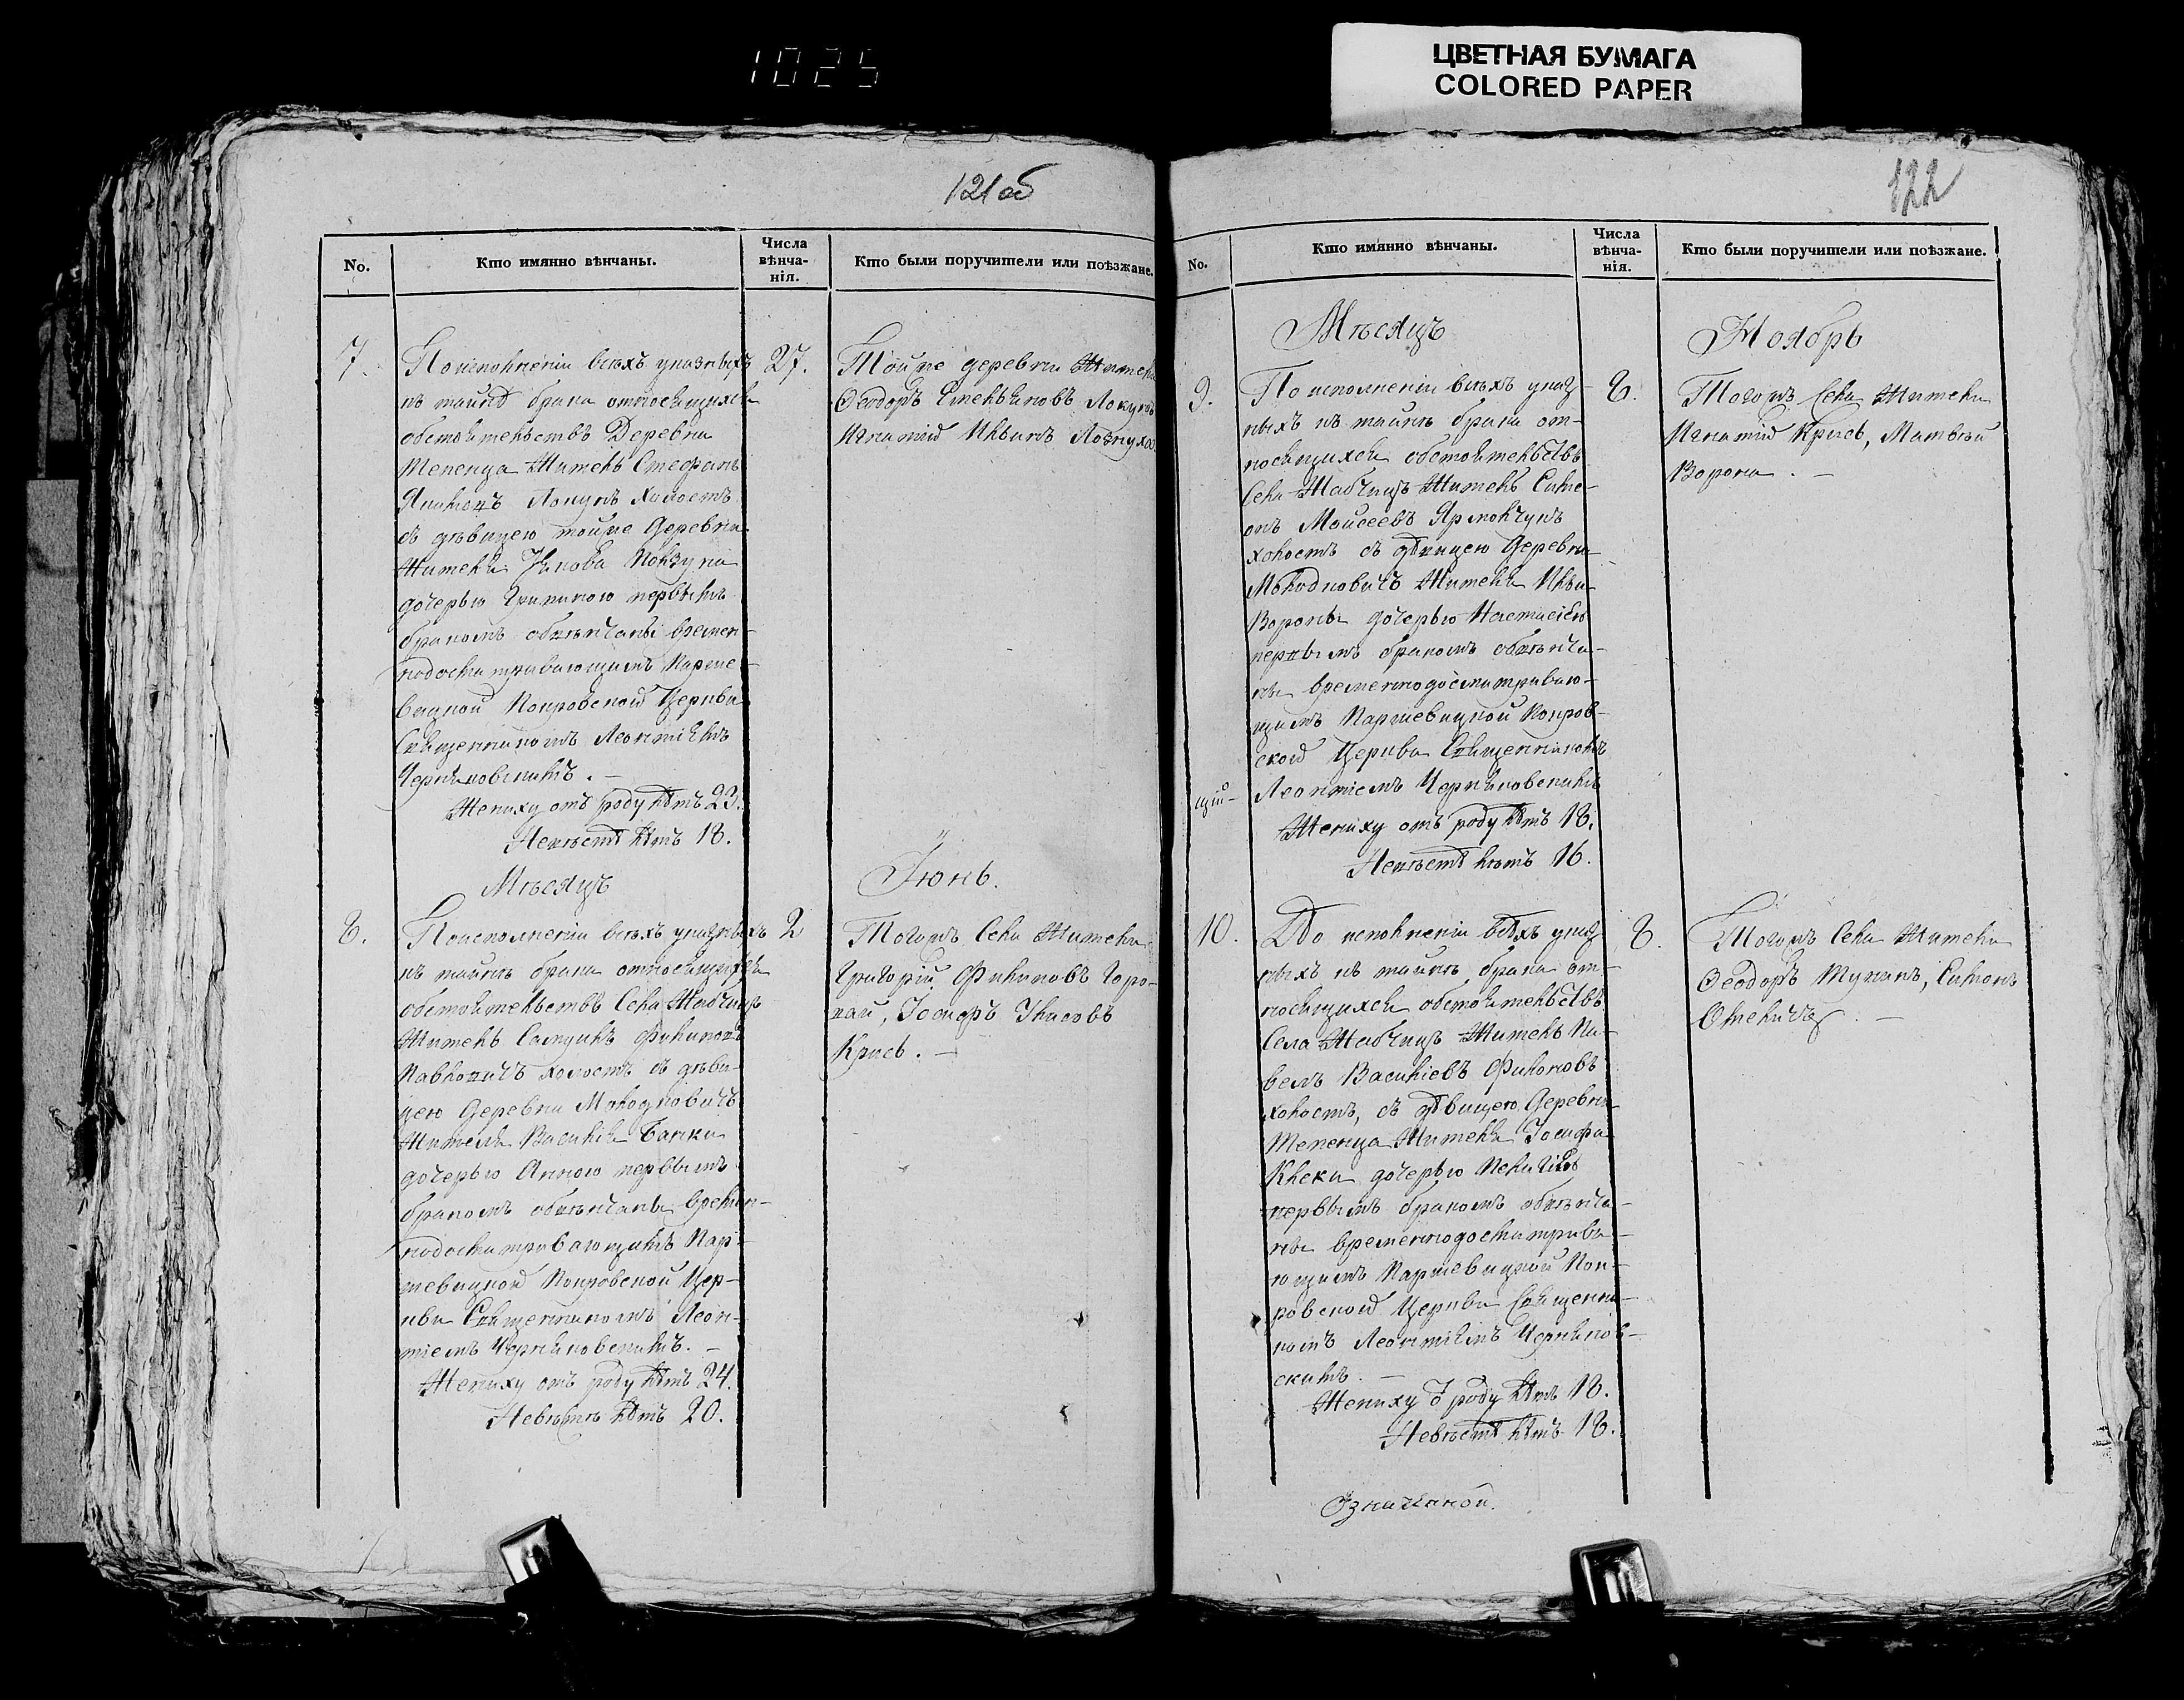 1025
ЦВЕТНАЯ БУМАГА
COLORED PAPER
121 об
No.
Кто имянно вѣнчаны.
Числа
вѣнча-
нія.
Кто были поручители или поѣзжане.
7.
По исполненіи всѣхъ указныхъ
къ тайнѣ брака относящихся
обстоятельствъ Деревни
Тепенца Житель Стефанъ
холостъ
съ дѣвицею тойже Деревни
Жителя
дочерью первымъ
бракомъ обвѣнчаны времен-
нодосматривающимъ Карже-
вицкой Покровской Церкви
Священникомъ Леонтіемъ
Черняковскимъ. —
Жениху отъ роду лѣтъ 23.
Невѣстѣ лѣтъ 18.
27.
Тойже деревни Жители
Ѳеодоръ
Игнатій Ильинъ
Мѣсяцъ
Іюнь.
8.
По исполненіи всѣхъ указныхъ
къ тайнѣ брака относящихся
обстоятельствъ Села Жабчицъ
Житель Самуилъ Филиповъ
Павловичъ холостъ съ дѣви-
цею Деревни Молодковичъ
Жителя Василія Банки
дочерью Анною первымъ
бракомъ обвѣнчаны времен-
нодосматривающимъ Кар-
жевицкой Покровской Цер-
кви Священникомъ Леон-
тіемъ Черняковскимъ. —
Жениху отъ роду лѣтъ 24.
Невѣстѣ лѣтъ 20.
2
Тогожъ Села Жители
Григорій Филиповъ Горо-
Іосифъ
Крись. —
122
No.
Кто имянно вѣнчаны.
Числа
вѣнча-
нія.
Кто были поручители или поѣзжане.
Мѣсяцъ
Ноябрь
9.
По исполненіи всѣхъ указ-
ныхъ къ тайнѣ брака от-
носящихся обстоятельствъ
Села Жабчицъ Житель Симе-
онъ Моисеевъ Ярмолчукъ
холостъ съ дѣвицею Деревни
Молодковичъ Жителя Ильи
Вороны дочерью Настасіею
первымъ бракомъ обвѣнча-
ны временнодосматриваю-
щимъ Каржевицкой Покров-
ской Церкви Священникомъ
Леонтіемъ Черняковскимъ
Жениху отъ роду лѣтъ 18.
Невѣстѣ лѣтъ 16.
8.
Тогожъ Села Жители
Игнатій Крись, Матвѣй
Ворона. —
10.
По исполненіи всѣхъ указ-
ныхъ къ тайнѣ брака от-
носящихся обстоятельствъ
Села Жабчицъ Житель Па-
велъ Василіевъ Филоновъ
холостъ, съ дѣвицею Деревни
Тепенца Жителя Іосифа
Клеки дочерью
первымъ бракомъ обвѣнча-
ны временнодосматрива-
ющимъ Каржевицкой Пок-
ровской Церкви Священни-
комъ Леонтіемъ Черняков-
скимъ. —
Жениху ѿ роду лѣтъ 18.
Невѣстѣ лѣтъ 18.
8.
Тогожъ Села Жители
Ѳеодоръ Симонъ
Означенной.